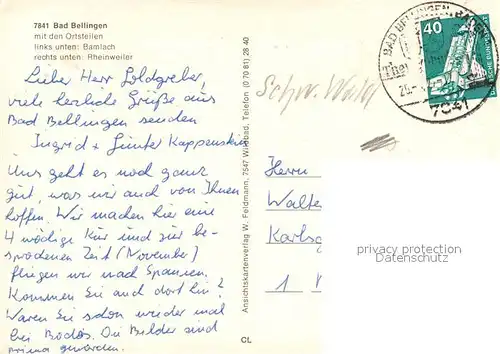 7841 Bad Bellingen
mit den Ortsteilen
links unten: Bamlach
rechts unten: Rheinweiler
Lieber Herr Goldgreber,
viele herzliche Grüße aus
Bad Bellingen senden
Ingrid + Günter Kappenstein
Uns geht es noch ganz
gut, was wir auch von Ihnen
hoffen. Wir machen hier eine
4 wödige Kur und zur be-
sprochenen Zeit (November)
fliegen wir nach Spanien.
Kommen Sie auch dort hin?
Waren Sie schon wieder mal
bei Bodos. Die Bilder sind
prima geworden.
Ansichtskartenverlag W. Feldmann, 7547 Wildbad, Telefon (0 70 81) 28 40
CL
Schw. Wald
BAD BELLINGEN, BADEN
7841
40
DEUTSCHE BUNDESPOST
Herrn
Walte
Karls
1
privacy protection
Datenschutz